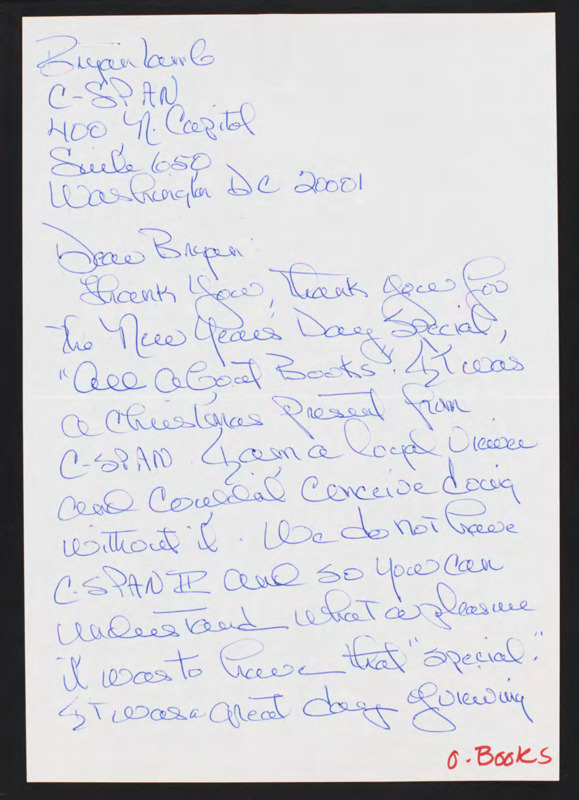 Bryan Lamb
C-SPAN
400 N. Capitol
Suite 650
Washington DC 20001
Dear Bryan:
Thank you, thank you for
the New Years Day Special,
"All about Books". It was
a Christmas present from
C-SPAN. I am a loyal viewer
and could not conceive doing
without it. We do not have
C-SPAN II and so you can
understand what a pleasure
it was to have that "special."
It was a great day of viewing
O-Books